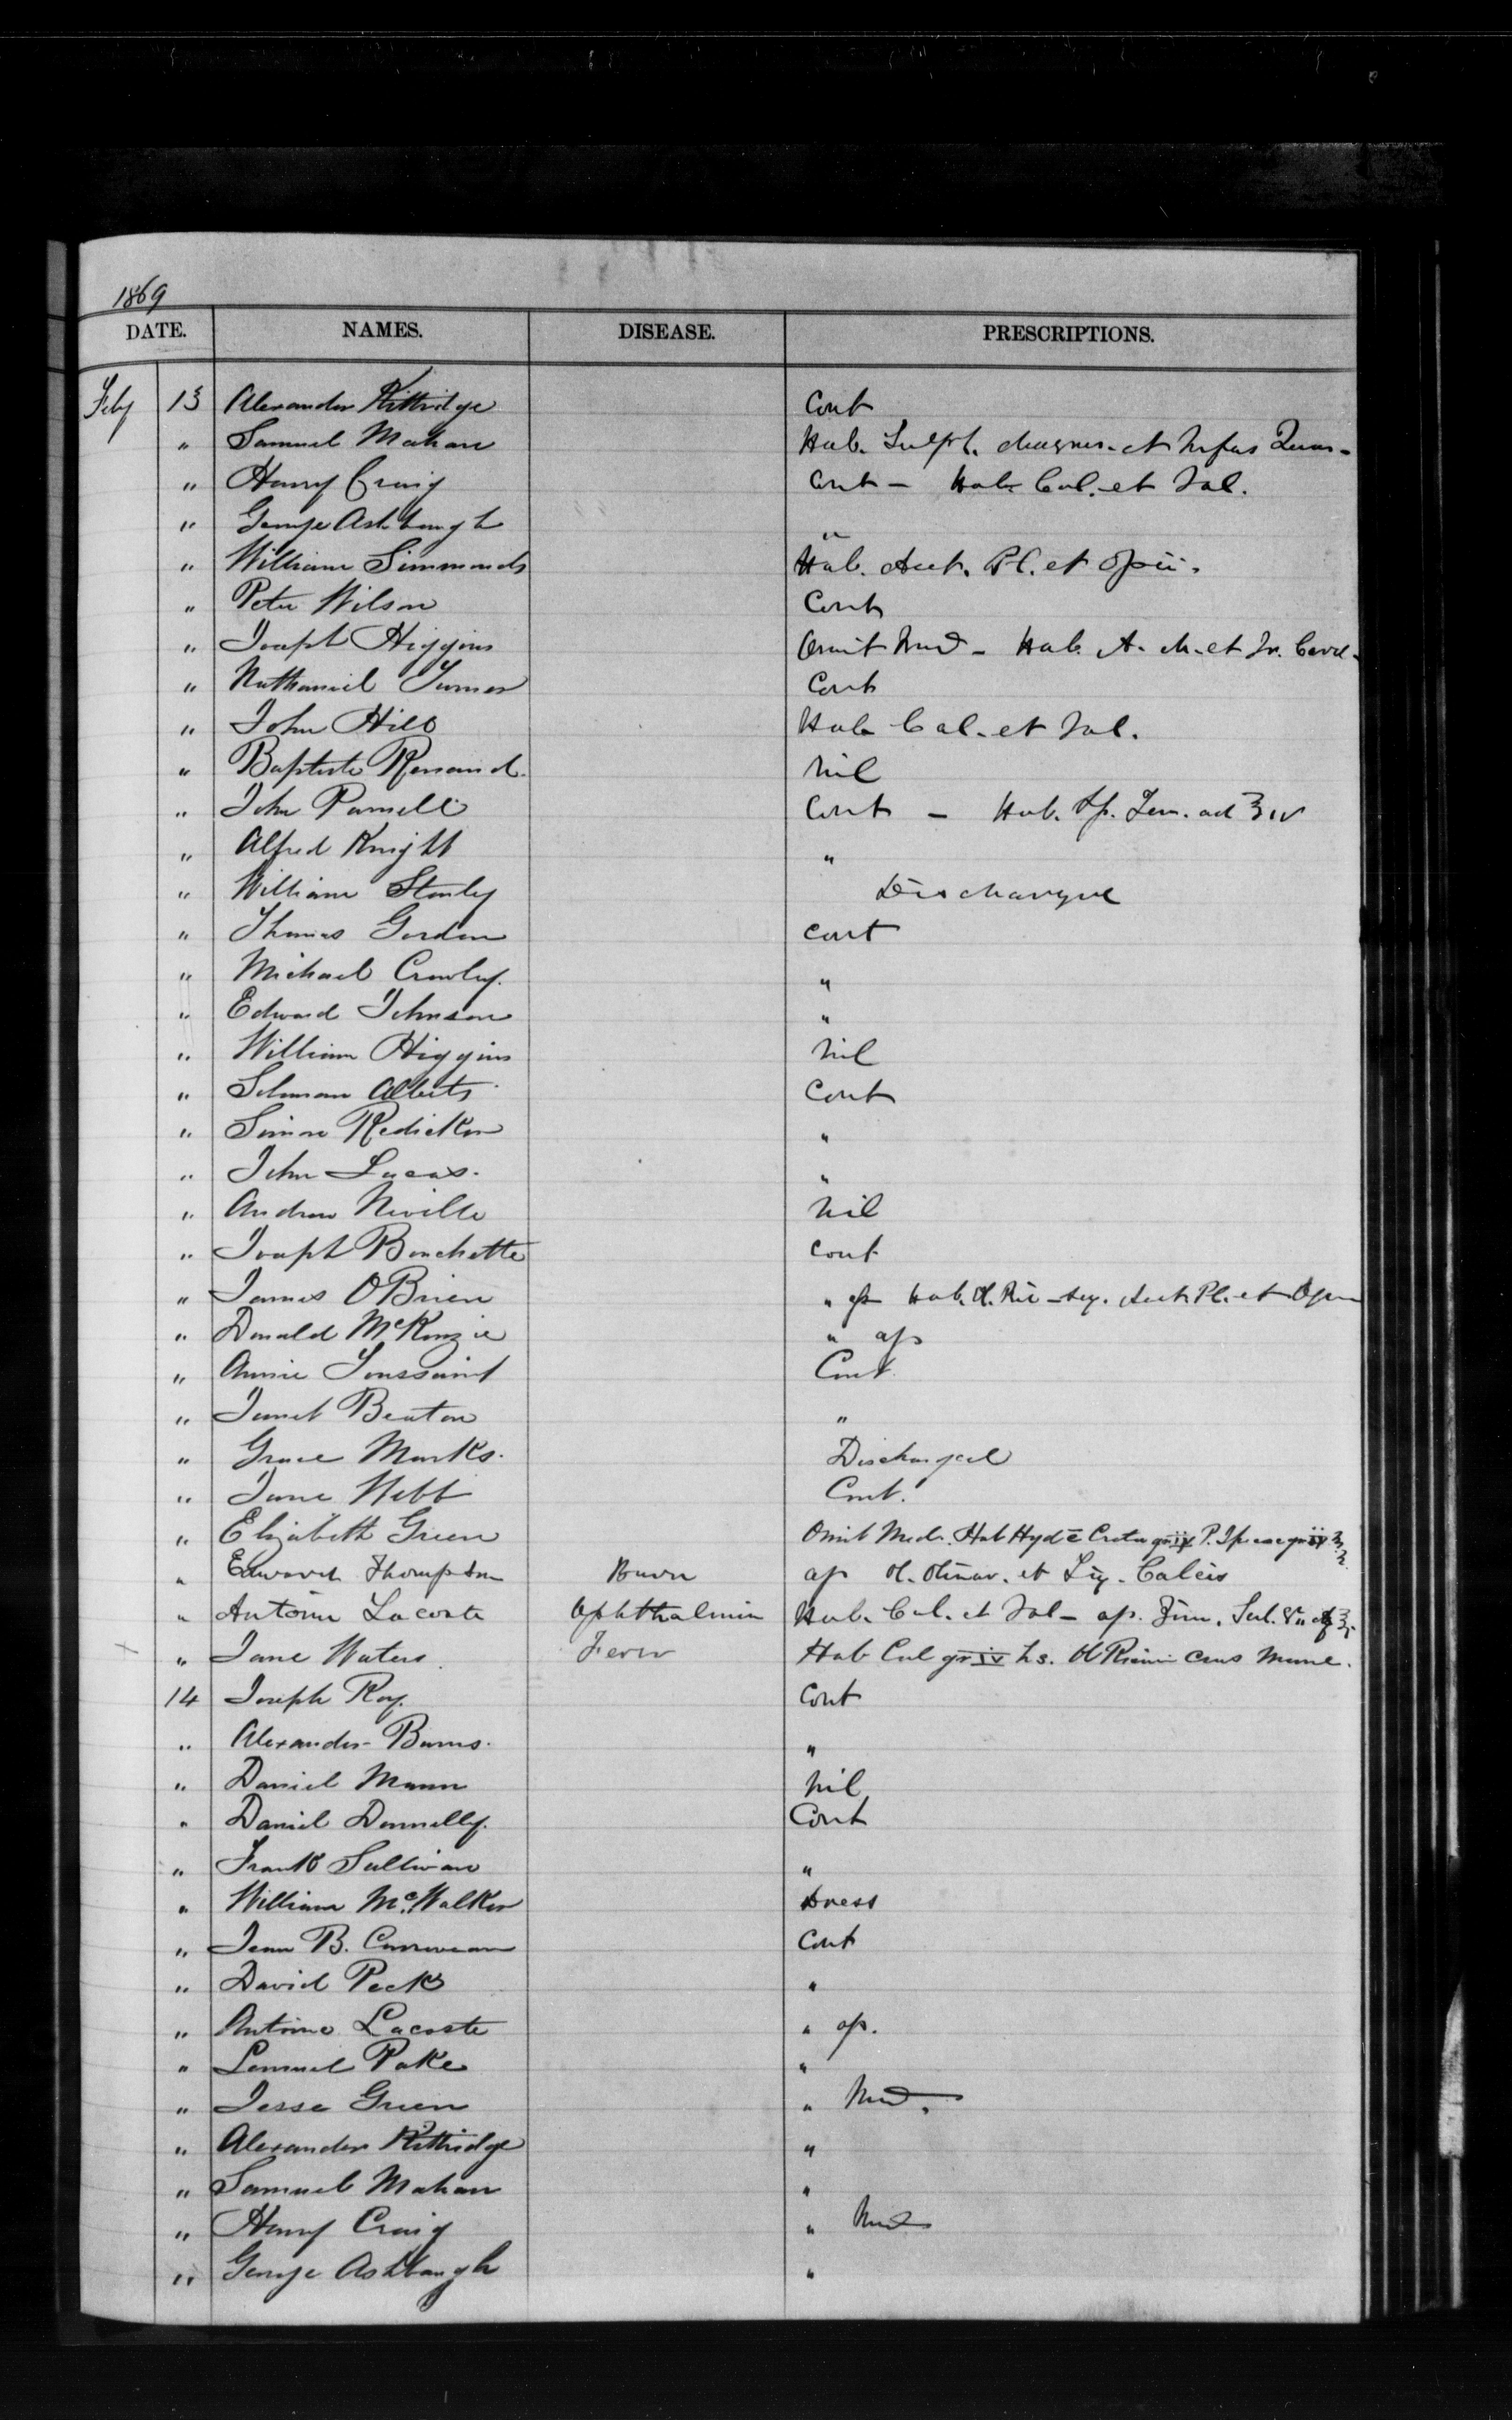 1869
DATE. NAMES. DISEASE. PRESCRIPTIONS.
Feby 13 Alexander Kittridge Cont
" Samuel Mahan Hab. Sulph. Magnes. et Infus Quas-
" Henry Craig Cont - Hab Cal. et Jal.
" George Ashbaugh "
" William Simmonds Hab. Acet. Pl. et Opii.
" Peter Wilson Cont
" Joseph Higgins Omit Med - Hab. A. M. et Tr. Card.
" Nathaniel Turner Cont
" John Hill Hab Cal. et Jal.
" Baptiste Renaud. Nil
" John Parnell Cont - Hab. Sp. Ten. ad ℥iv
" Alfred Knight "
" William Stanley Discharged
" Thomas Gordon Cont
" Michael Crowley. "
" Edward Johnson "
" William Higgins Nil
" Soloman Alberts Cont
" Simon Redicker "
" John Lucas. "
" Andrew Neville Nil
" Joseph Bouchette Cont
" James OBrien " ap Hab. Ol. Ric - seq. Acet. Pl. et Opii
" Donald McKenzie " ap
" Annie Toussaint Cont
" Janet Beaton "
" Grace Marks. Discharged
" Jane Webb Cont.
" Elizabeth Green Omit Med. Hab Hyd c̄ Creta gr P. Ipecac gr
" Edward Thompson Burn ap Ol. Olivar. et Liq. Calcis
" Antoine Lacoste Ophthalmia Hab. Cal. et Jal - ap. Zinc. Sul.
" Jane Waters. Fever Hab Cal gr iv h.s. Ol Ricini cras mane.
14 Joseph Roy. Cont
" Alexander Burns. "
" Daniel Mann Nil
" Daniel Donnelly. Cont
" Frank Sullivan "
" William McWalker Dress
" Jean B. Cont
" David Peck "
" Antoine Lacoste " ap.
" Lemuel Pake "
" Jesse Green " Med.
" Alexander Kittridge "
" Samuel Mahan "
" Henry Craig " Med
" George Ashbaugh "